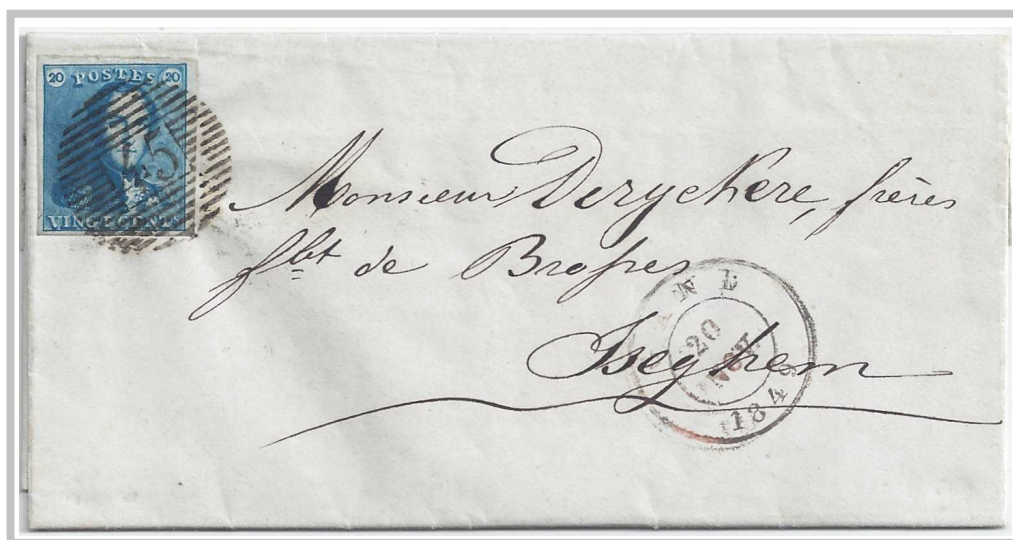 20 POSTES 20
VINGT CENTS
Monsieur Deryckere, frères
fbt de Brosses
Iseghem
20
NOV
1849